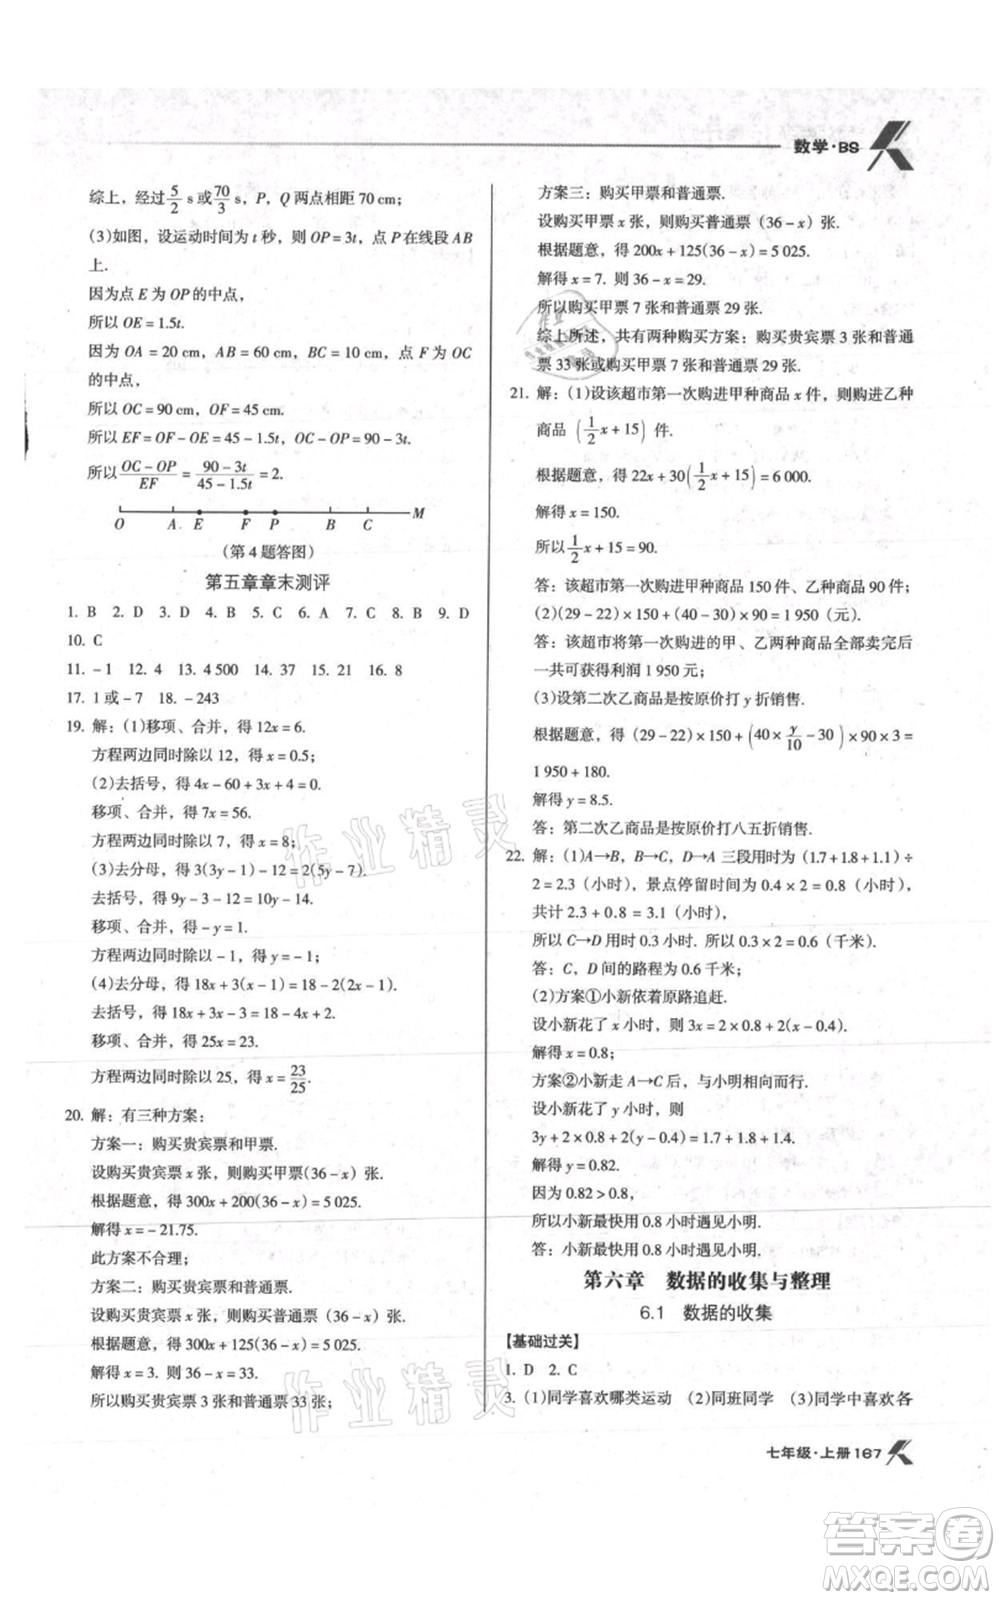 数学·BS
综上，经过5/2 s或70/3 s，P，Q两点相距70 cm；
(3)如图，设运动时间为t秒，则OP=3t，点P在线段AB
上.
因为点E为OP的中点，
所以OE=1.5t.
因为OA=20 cm，AB=60 cm，BC=10 cm，点F为OC
的中点，
所以OC=90 cm，OF=45 cm.
所以EF=OF-OE=45-1.5t，CP=90-3t.
所以(OC-OP)/EF=(90-3t)/(45-1.5t)=2.
O A E F P B C M
(第4题答图)
第五章章末测评
1. B 2. D 3. D 4. B 5. C 6. A 7. C 8. B 9. D
10. C
11. -1 12. 4 13. 4 500 14. 37 15. 21 16. 8
17. 1或-7 18. -243
19. 解：(1)移项、合并，得12x=6.
方程两边同时除以12，得x=0.5；
(2)去括号，得4x-60+3x+4=0
移项、合并，得7x=56.
方程两边同时除以7，得x=8；
(3)去分母，得3(3y-1)-12=2(5y-7).
去括号，得9y-3-12=10y-14.
移项、合并，得-y=1.
方程两边同时除以-1，得y=-1；
(4)去分母，得18x+3(x-1)=18-2(2x-1).
去括号，得18x+3x-3=18-4x+2.
移项、合并，得25x=23.
方程两边同时除以25，得x=23/25.
20. 解：有三种方案：
方案一：购买贵宾票和甲票.
设购买贵宾票x张，则购买甲票(36-x)张.
根据题意，得300x+200(36-x)=5 025.
解得x=-21.75.
此方案不合理；
方案二：购买贵宾票和普通票.
设购买贵宾票x张，则购买普通票(36-x)张.
根据题意，得300x+125(36-x)=5 025.
解得x=3. 则36-x=33.
所以购买贵宾票3张和普通票33张；
方案三：购买甲票和普通票.
设购买甲票x张，则购买普通票(36-x)张.
根据题意，得200x+125(36-x)=5 025.
解得x=7. 则36-x=29.
所以购买甲票7张和普通票29张.
综上所述，共有两种购买方案：购买贵宾票3张和普通
票33张或购买甲票7张和普通票29张.
21. 解：(1)设该超市第一次购进甲种商品x件，则购进乙种
商品(1/2x+15)件.
根据题意，得22x+30(1/2x+15)=6 000.
解得x=150.
所以1/2x+15=90.
答：该超市第一次购进甲种商品150件，乙种商品90件；
(2)(29-22)×150+(40-30)×90=1 950(元).
答：该超市将第一次购进的甲、乙两种商品全部卖完后
一共可获得利润1 950元；
(3)设第二次乙商品是按原价打y折销售.
根据题意，得(29-22)×150+(40×y/10-30)×90×3=
1 950+180.
解得y=8.5.
答：第二次乙商品是按原价打八五折销售.
22. 解：(1)A→B，B→C，D→A三段用时为(1.7+1.8+1.1)÷
2=2.3(小时)，景点停留时间为0.4×2=0.8(小时)，
共计2.3+0.8=3.1(小时)，
所以C→D用时0.3小时. 所以0.3×2=0.6(千米).
答：C，D间的路程为0.6千米；
(2)方案①小新依着原路追赶.
设小新花了x小时，则3x=2×0.8+2(x-0.4).
解得x=0.8；
方案②小新走A→C，与小明相向而行.
设小新花了y小时，则
3y+2×0.8+2(y-0.4)=1.7+1.8+1.4.
解得y=0.82.
因为0.82>0.8，
所以小新最快用0.8小时遇见小明.
答：小新最快用0.8小时遇见小明.
第六章 数据的收集与整理
6.1 数据的收集
【基础过关】
1. D 2. C
3. (1)同学喜欢哪类运动 (2)同班同学 (3)同学中喜欢各
七年级·上册167
作业精灵
作业精灵
答案圈
MXQE.COM